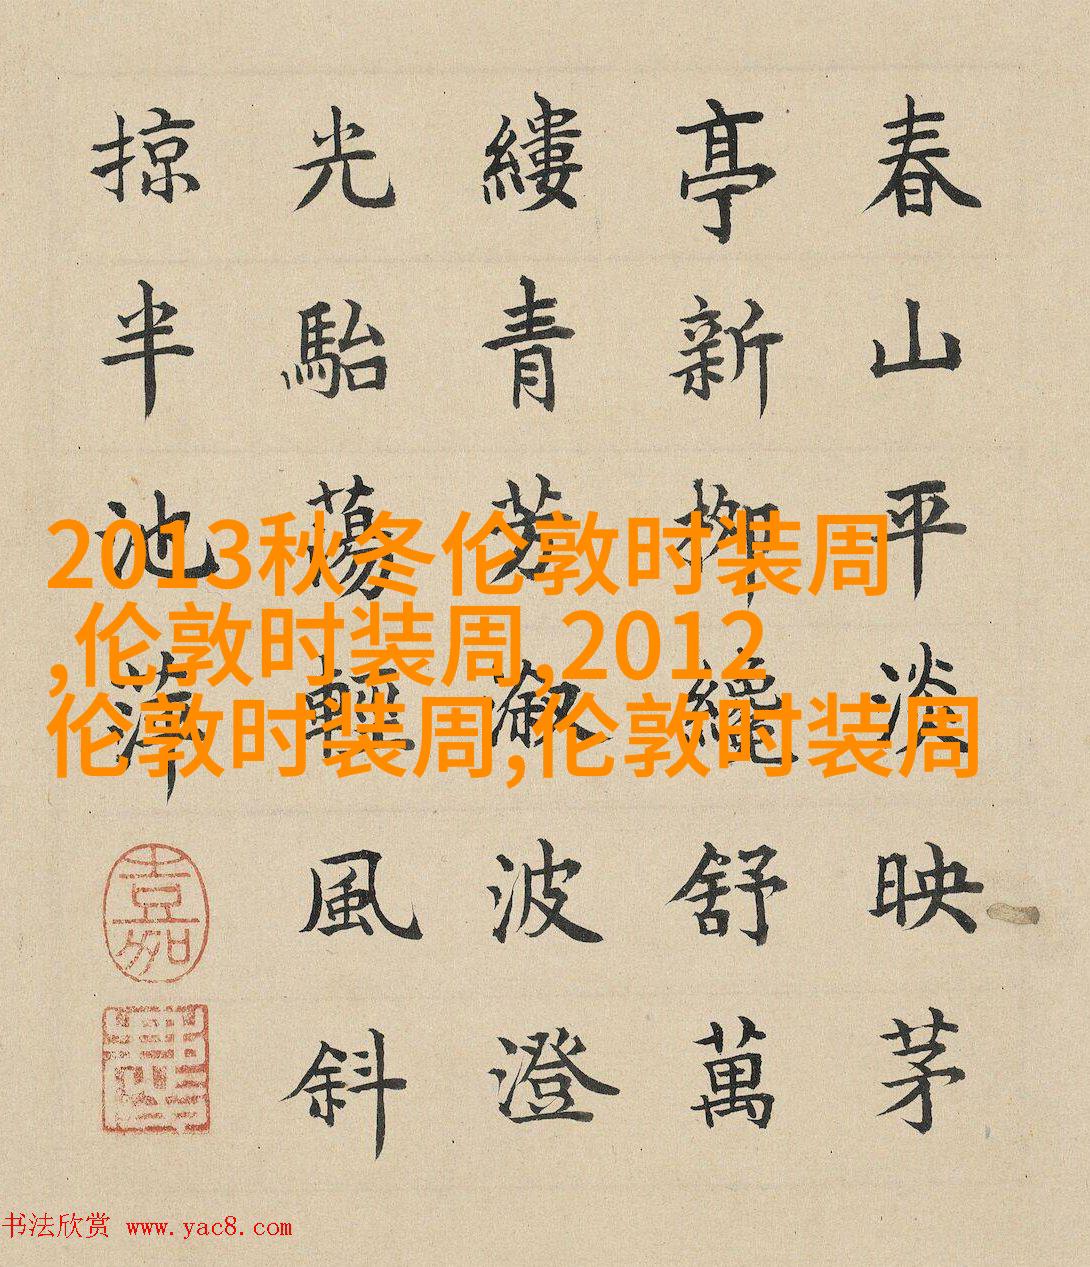 春山平淡映茅
亭新柳纔舒萬
縷青芳溆波澄
光駘蕩輕風斜
掠半池萍
嘉
2013秋冬伦敦时装周
,伦敦时装周,2012
伦敦时装周,伦敦时装周
书法欣赏 www.yac8.com